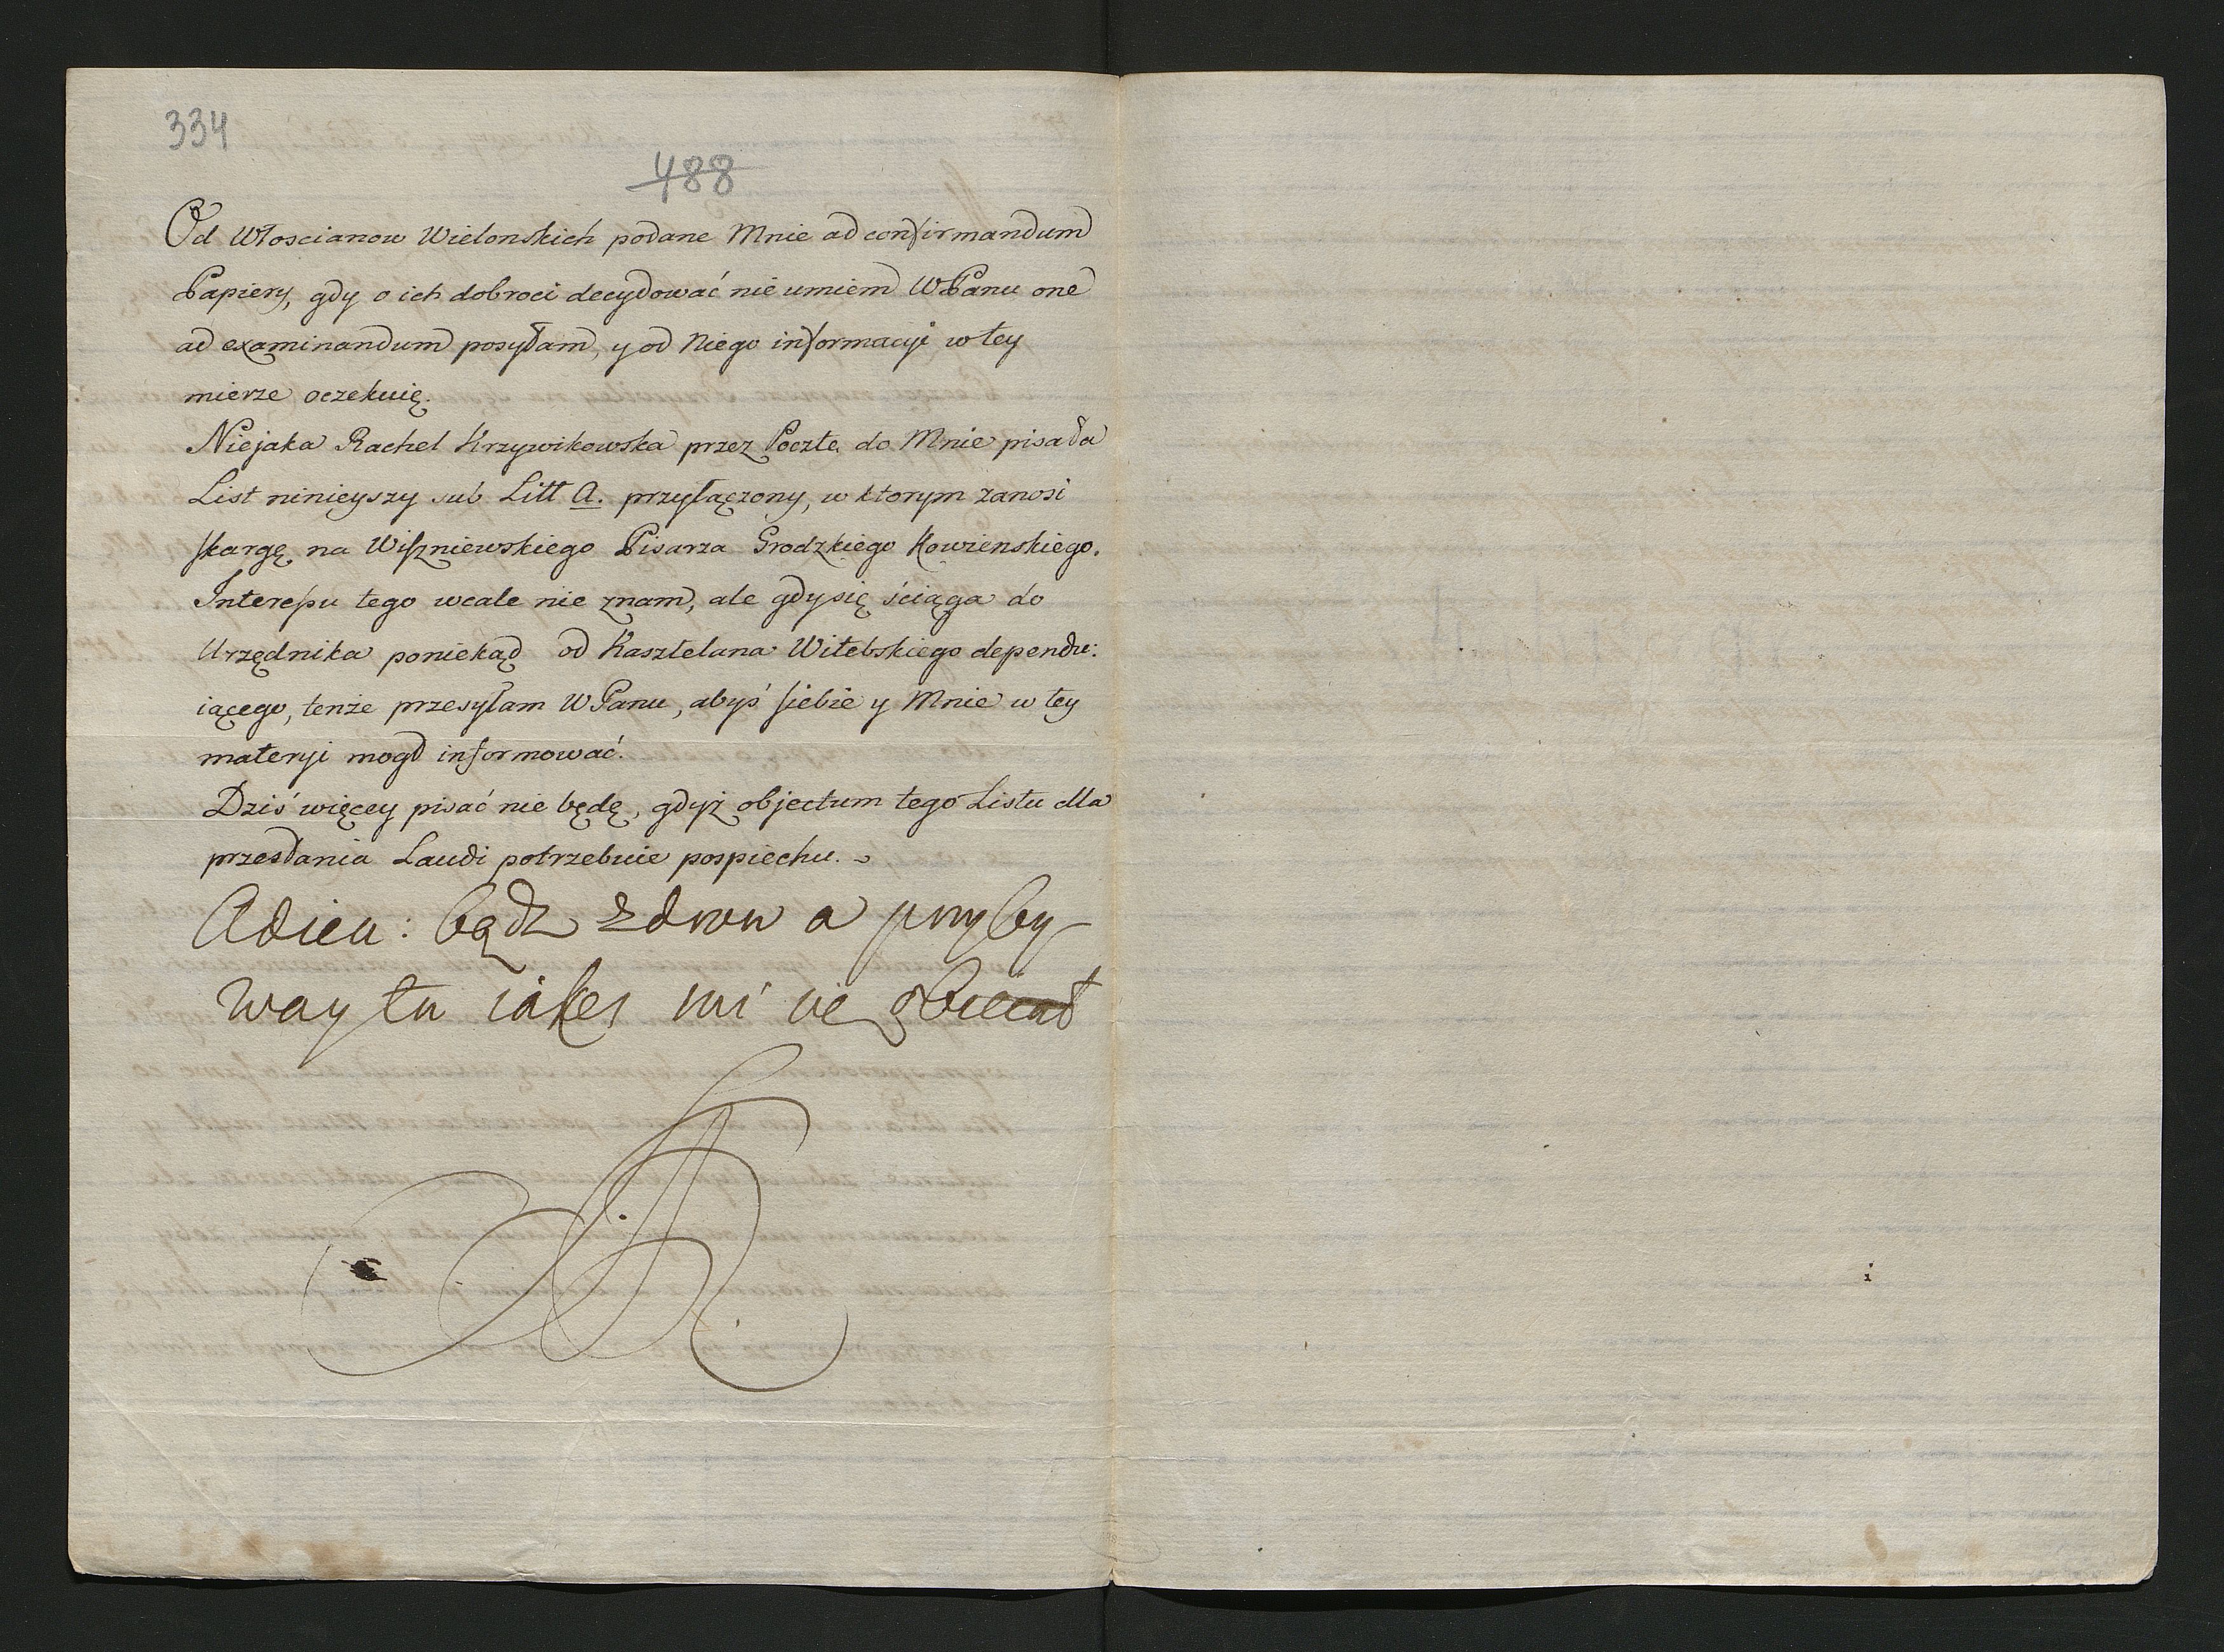 334
488
Od Włoscianow Wielonskich podane Mnie ad confirmandum
Papiery, gdy o ich dobroci decydować nie umiem WPanu one
ad examinandum posyłam, y od Niego informacyi w tey
mierze oczekuię.
Niejaka Rachel Krzywikowska przez Pocztę do Mnie pisała
List ninieyszy sub Litt A. przyłączony, w ktorym zanosi
skargę na Wiszniewskiego Pisarza Grodzkiego Kowienskiego.
Interessu tego wcale nie znam, ale gdy się ściąga do
Urzędnika poniekąd od Kasztelana Witebskiego dependu:
iącego, tenże przesyłam WPanu, abyś siebie y Mnie w tey
materyi mogł informować.
Dziś więcey pisać nie będę, gdyż objectum tego Listu dla
przesłania Laudi potrzebuie pospiechu.
Adieu: bądz zdrow a przyby
way tu iakes mi obiecał